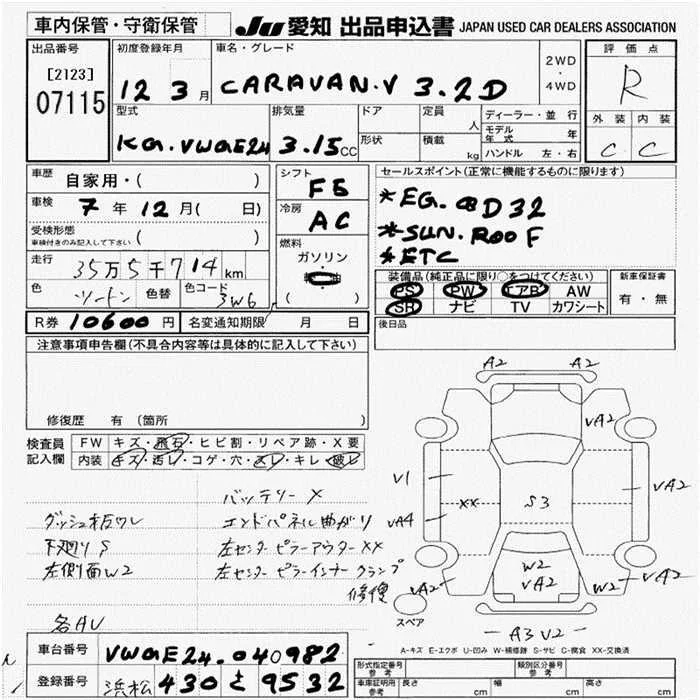 車内保管・守衛保管 JU 愛知 出品申込書 JAPAN USED CAR DEALERS ASSOCIATION
出品番号 初度登録年月 車名・グレード 評価点
[2123] 07115 12 3月 CARAVAN.V 3.2D 2WD・4WD R
型式 排気量 ドア 定員 人 ディーラー・並行 外装 内装
KG.VWGE24 3.15CC 形状 積載 kg モデル年式 年 C C
ハンドル 左・右
車歴 自家用・( ) シフト F5 セールスポイント(正常に機能するものに限ります)
車検 7年12月( 日) 冷房 AC *EG. QD32
受検形態 車検付きのみ記入して下さい ( ) 燃料 ガソリン *SUN. ROOF
走行 35万5千714km ( ) *ETC
色 ツートン 色替 色コード 3W6 装備品(純正品に限り○をつけてください) 新車保証書
PS PW エアB AW 有・無
SR ナビ TV カワシート
R券 10600円 名変通知期限 月 日 後日品
注意事項申告欄(不具合内容等は具体的に記入して下さい)
修復歴 有 (箇所 )
検査員記入欄 FW キズ・飛石・ヒビ割・リペア跡・X要
内装 キズ・汚レ・コゲ・穴・スレ・キレ・破レ
バッテリーX
ダッシュ板ワレ エンドパネル曲がり
下廻りS 左センターピラーアウターXX
左側面W2 左センターピラーインナークランプ
修復
各AU
A2 A2
VA2
V1 XX S3 VA2
VA4
VA2 W2 VA2 W2 VA2
スペア
A3V2
A-キズ E-エクボ U-凹み W-補修跡 S-サビ C-腐食 XX-交換済
車台番号 VWGE24.040982 形式指定番号 参考 類別区分番号 参考
登録番号 浜松 430 と 9532 車庫証明用 参考 長さ cm 幅 cm 高さ cm